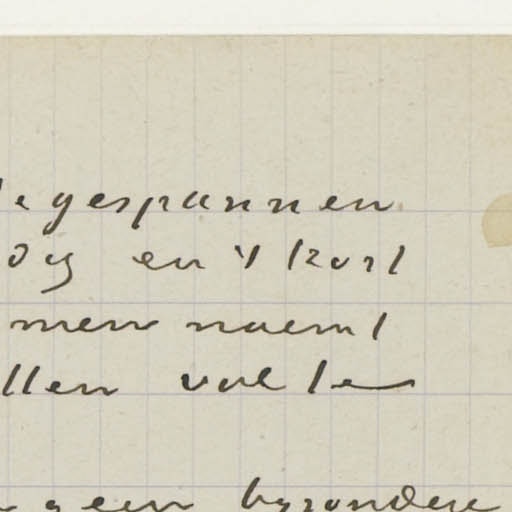 te gespannen
en 't kort
men noemt
llen vol te
geen byzondere